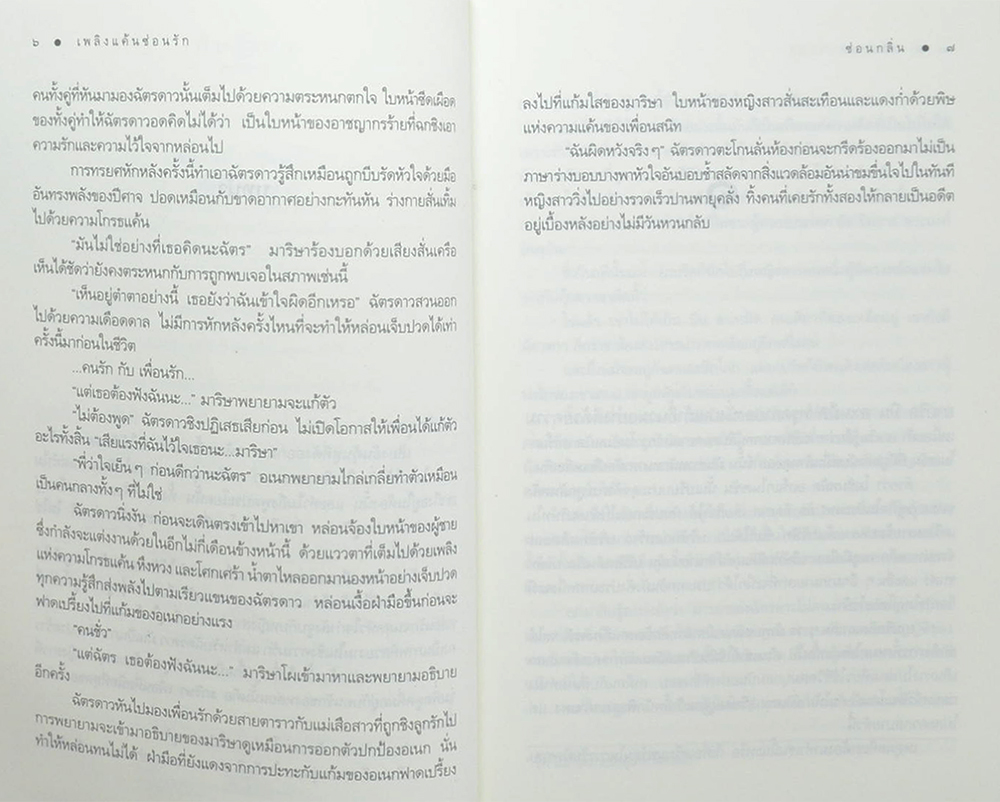 ๖ ● เพลิงแค้นซ่อนรัก
คนทั้งคู่ที่หันมามองฉัตรดาวนั้นเต็มไปด้วยความตระหนกตกใจ ใบหน้าซีดเผือด
ของทั้งคู่ทำให้ฉัตรดาวอดคิดไม่ได้ว่า เป็นใบหน้าของอาชญากรร้ายที่ฉกชิงเอา
ความรักและความไว้ใจจากหล่อนไป
การทรยศหักหลังครั้งนี้ทำเอาฉัตรดาวรู้สึกเหมือนถูกบีบรัดหัวใจด้วยมือ
อันทรงพลังของปีศาจ ปอดเหมือนกับขาดอากาศอย่างกะทันหัน ร่างกายสั่นเทิ้ม
ไปด้วยความโกรธแค้น
“มันไม่ใช่อย่างที่เธอคิดนะฉัตร” มาริษาร้องบอกด้วยเสียงสั่นเครือ
เห็นได้ชัดว่ายังคงตระหนกกับการถูกพบเจอในสภาพเช่นนี้
“เห็นอยู่ตำตาอย่างนี้ เธอยังว่าฉันเข้าใจผิดอีกเหรอ” ฉัตรดาวสวนออก
ไปด้วยความเดือดดาล ไม่มีการหักหลังครั้งไหนที่จะทำให้หล่อนเจ็บปวดได้เท่า
ครั้งนี้มาก่อนในชีวิต
...คนรัก กับ เพื่อนรัก...
“แต่เธอต้องฟังฉันนะ...” มาริษาพยายามจะแก้ตัว
“ไม่ต้องพูด” ฉัตรดาวชิงปฏิเสธเสียก่อน ไม่เปิดโอกาสให้เพื่อนได้แก้ตัว
อะไรทั้งสิ้น “เสียแรงที่ฉันไว้ใจเธอนะ...มาริษา”
“พี่ว่าใจเย็นๆ ก่อนดีกว่านะฉัตร” อเนกพยายามไกล่เกลี่ยทำตัวเหมือน
เป็นคนกลางทั้งๆ ที่ไม่ใช่
ฉัตรดาวนิ่งงัน ก่อนจะเดินตรงเข้าไปหาเขา หล่อนจ้องใบหน้าของผู้ชาย
ซึ่งกำลังจะแต่งงานด้วยในอีกไม่กี่เดือนข้างหน้านี้ ด้วยแววตาที่เต็มไปด้วยเพลิง
แห่งความโกรธแค้น หึงหวง และโศกเศร้า น้ำตาไหลออกมานองหน้าอย่างเจ็บปวด
ทุกความรู้สึกส่งพลังไปตามเรียวแขนของฉัตรดาว หล่อนเงื้อฝ่ามือขึ้นก่อนจะ
ฟาดเปรี้ยงไปที่แก้มของอเนกอย่างแรง
“คนชั่ว”
“แต่ฉัตร เธอต้องฟังฉันนะ...” มาริษาโผเข้ามาหาและพยายามอธิบาย
อีกครั้ง
ฉัตรดาวหันไปมองเพื่อนรักด้วยสายตาราวกับแม่เสือสาวที่ถูกชิงลูกรักไป
การพยายามจะเข้ามาอธิบายของมาริษาดูเหมือนการออกตัวปกป้องอเนก นั่น
ทำให้หล่อนทนไม่ได้ ฝ่ามือที่ยังแดงจากการปะทะกับแก้มของอเนกฟาดเปรี้ยง
ซ่อนกลิ่น ● ๗
ลงไปที่แก้มใสของมาริษา ใบหน้าของหญิงสาวสั่นสะเทือนและแดงก่ำด้วยพิษ
แห่งความแค้นของเพื่อนสนิท
“ฉันผิดหวังจริงๆ” ฉัตรดาวตะโกนลั่นห้องก่อนจะกรีดร้องออกมาไม่เป็น
ภาษาร่างบอบบางพาหัวใจอันบอบช้ำสลัดจากสิ่งแวดล้อมอันน่าขมขื่นใจไปในทันที
หญิงสาววิ่งไปอย่างรวดเร็วปานพายุคลั่ง ทิ้งคนที่เคยรักทั้งสองให้กลายเป็นอดีต
อยู่เบื้องหลังอย่างไม่มีวันหวนกลับ